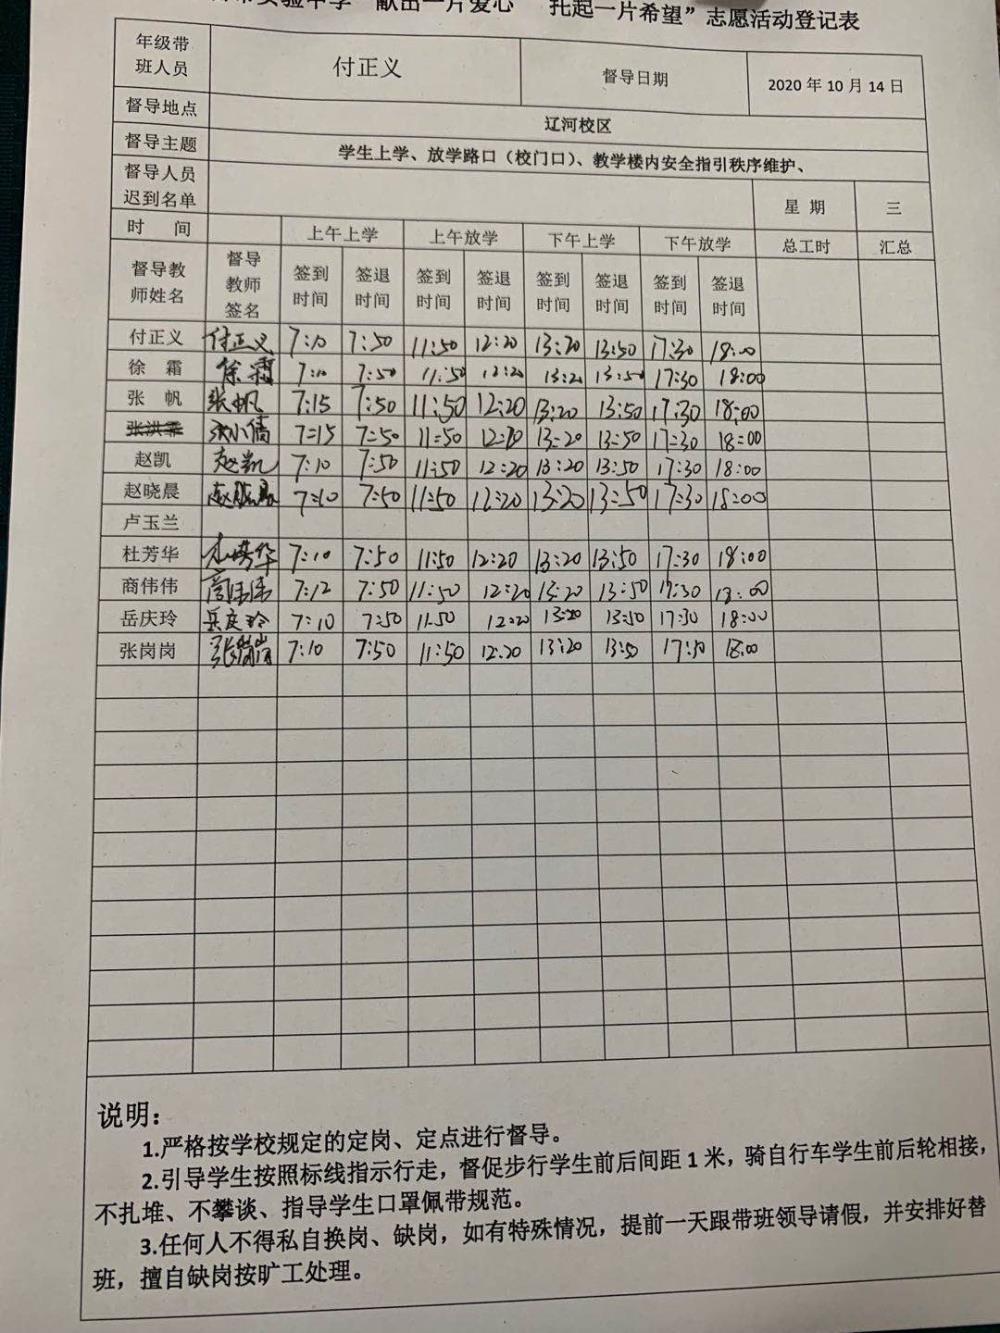 “献出一片爱心 托起一片希望”志愿活动登记表
年级带班人员 付正义 督导日期 2020 年 10 月 14 日
督导地点 辽河校区
督导主题 学生上学、放学路口（校门口）、教学楼内安全指引秩序维护、
督导人员迟到名单 星 期 三
时 间 上午上学 上午放学 下午上学 下午放学 总工时 汇总
督导教师姓名 督导教师签名 签到时间 签退时间 签到时间 签退时间 签到时间 签退时间 签到时间 签退时间
付正义 付正义 7:10 7:50 11:50 12:20 13:20 13:50 17:30 18:00
徐 霜 徐霜 7:10 7:50 11:50 12:20 13:20 13:50 17:30 18:00
张 帆 张帆 7:15 7:50 11:50 12:20 13:20 13:50 17:30 18:00
7:15 7:50 11:50 12:20 13:20 13:50 17:30 18:00
赵凯 赵凯 7:10 7:50 11:50 12:20 13:20 13:50 17:30 18:00
赵晓晨 赵晓晨 7:10 7:50 11:50 12:20 13:20 13:50 17:30 18:00
卢玉兰
杜芳华 杜芳华 7:10 7:50 11:50 12:20 13:20 13:50 17:30 18:00
商伟伟 商伟伟 7:12 7:50 11:50 12:20 13:20 13:50 17:30 18:00
岳庆玲 岳庆玲 7:10 7:50 11:50 12:20 13:20 13:50 17:30 18:00
张岗岗 张岗岗 7:10 7:50 11:50 12:20 13:20 13:50 17:30 18:00
说明：
1.严格按学校规定的定岗、定点进行督导。
2.引导学生按照标线指示行走，督促步行学生前后间距 1 米，骑自行车学生前后轮相接，
不扎堆、不攀谈、指导学生口罩佩带规范。
3.任何人不得私自换岗、缺岗，如有特殊情况，提前一天跟带班领导请假，并安排好替
班，擅自缺岗按旷工处理。